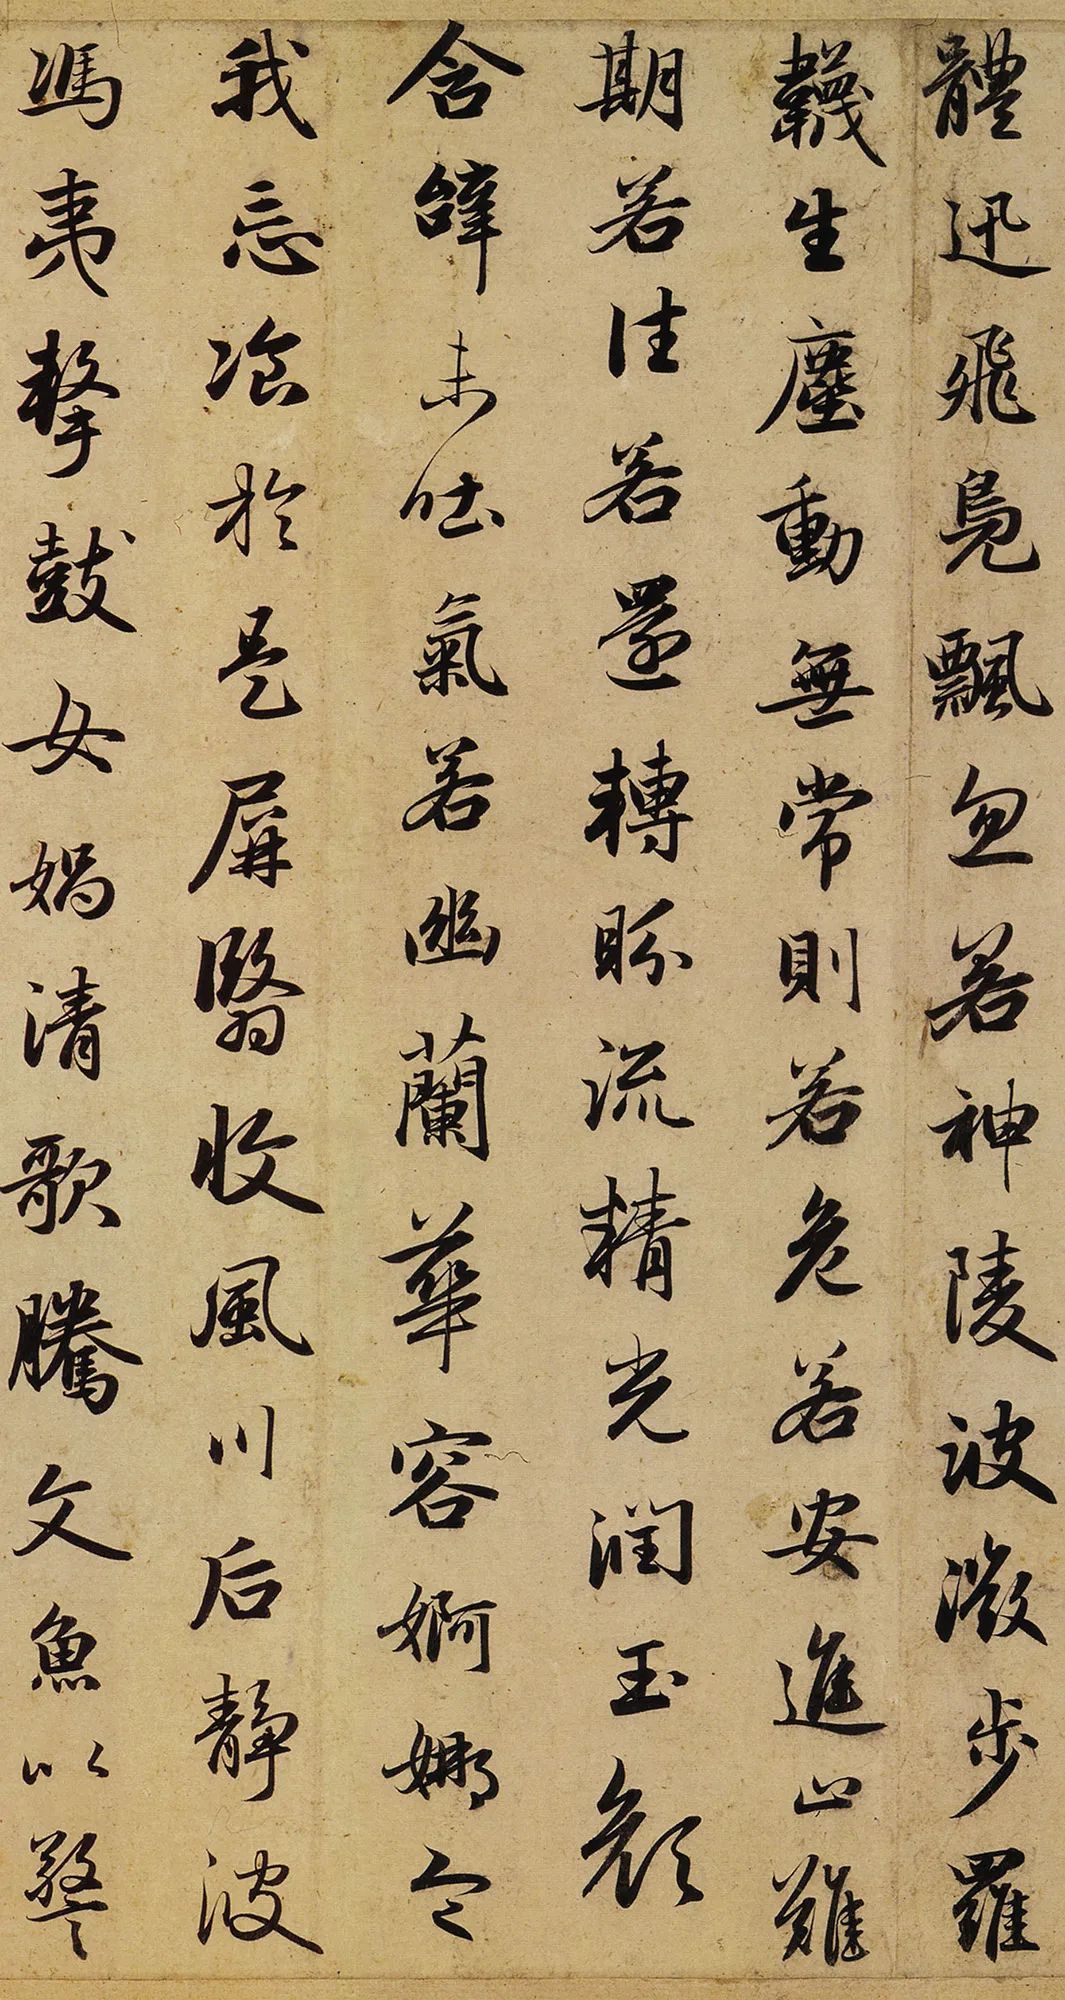 體迅飛鳧飄忽若神陵波微步羅
韈生塵動無常則若危若安進止難
期若往若還轉盼流精光潤玉顏
含辭未吐氣若幽蘭華容婀娜令
我忘飡於是屏翳收風川后靜波
馮夷擊鼓女媧清歌騰文魚以警